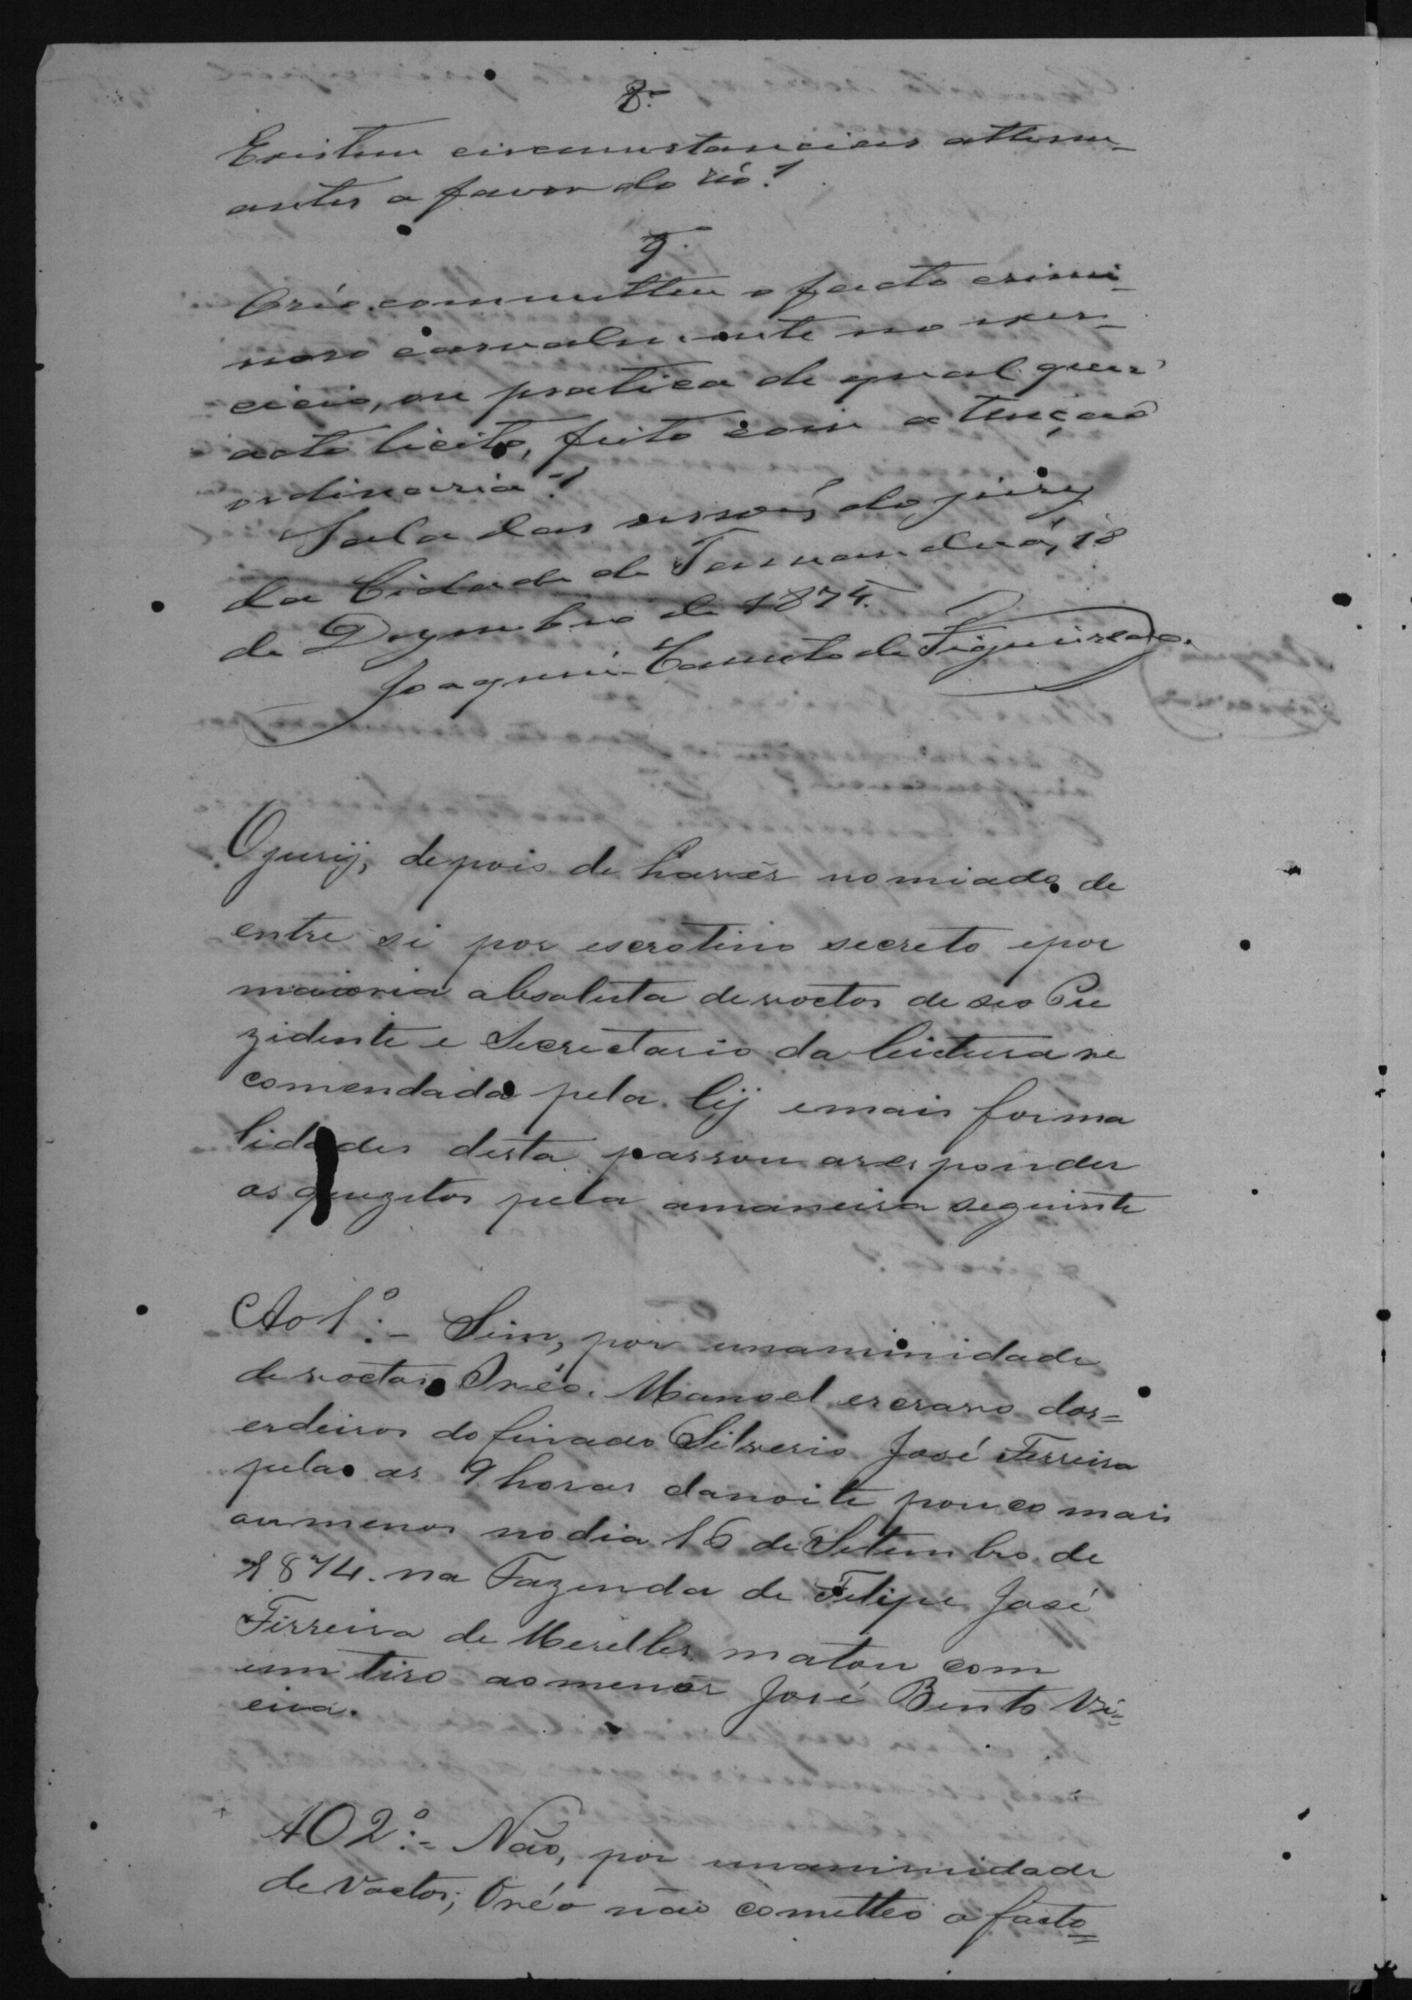 8.
Existem circumstancias attenu_
antes a favor do réo?
9.
O réo commetteu o facto crimi_
noso casualmente no exer_
cicio, ou pratica de qual quer
acto licito, feito com a tenção
ordinaria?
Sala das sessões do jury
da Cidade de Tamanduá, 18
de Dezembro de 1874.
Joaquim Canuto de Figueiredo.
O jurij, depois de haver nomiado de
entre si por escrotino secreto epor
maioria absoluta de voctos de seo Pre
zidente e Secrectario da leictura re
comendada pela lij emais forma
lidades desta passou aresponder
os quezitos pela amaneira seguinte
Ao 1º:- Sim, por unaminidade
de voctos Oréo. Manoel escravo dos=
erdeiros do finado Silverio José Ferreira
pelas as 9 horas danoite pouco mais
oumenos nodia 16 de Setembro de
1874. na Fazenda de Felipe José
Ferreira de Merelles matou com
um tiro aomenor José Bento Vi=
eira.
AO 2º:= Não, por unaminidade
de Voctos; Oréo não cometteo o facto=